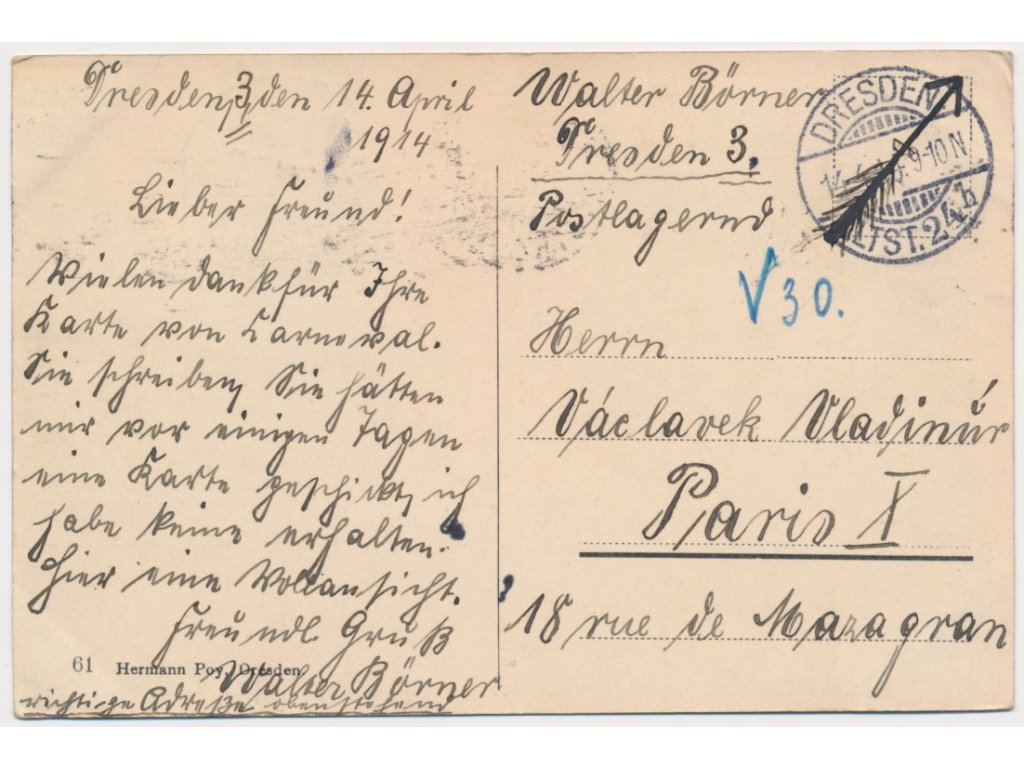 Dresden, 3, den 14. April
1914
Lieber Freund!
Vielen dank für Ihre
Karte von Carneval.
Sie schreiben, Sie hätten
mir vor einigen Tagen
eine Karte geschickt, ich
habe keine erhalten.
Hier eine Vollansicht.
Freundl. Gruß
Walter Börner
richtige Adreße obenstehend
61 Hermann Poy, Dresden
Walter Börner
Dresden 3.
Postlagernd
DRESDEN
9-10 N
ALTST. 24 h
V 30.
Herrn
Václavek Vladimír
Paris X
18 rue de Mazagran